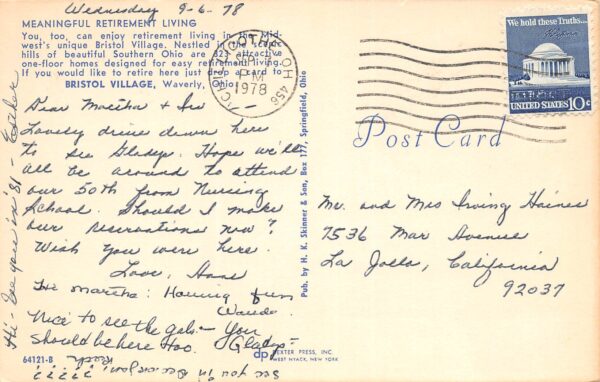 Wednesday 9-6.78
MEANINGFUL RETIREMENT LIVING
You, too, can enjoy retirement living in the Mid-
west's unique Bristol Village. Nestled in the scenic
hills of beautiful Southern Ohio are 323 attractive
one-floor homes designed for easy retirement living.
If you would like to retire here just drop a card to
BRISTOL VILLAGE, Waverly, Ohio
Dear Martha + Irv -
Lovely drive down here
to see Gladys. Hope we'll
all be around to attend
our 50th from Nursing
School. Should I make
our reservations now?
Wish you were here.
Love,
Hi Martha: Having fun
Wanda
Nice to see the gals - You
should be here too.
Gladys
64121-B
See you in
Hi - See you in '81 - Esther
Pub. by H. K. Skinner & Son, Box 177, Springfield, Ohio
dp DEXTER PRESS, INC.
WEST NYACK, NEW YORK
CHILLICOTHE, OH 456
SEP
PM
1978
We hold these Truths...
UNITED STATES 10c
Post Card
Mr. and Mrs Irving Haines
7536 Mar Avenue
La Jolla, California
92037